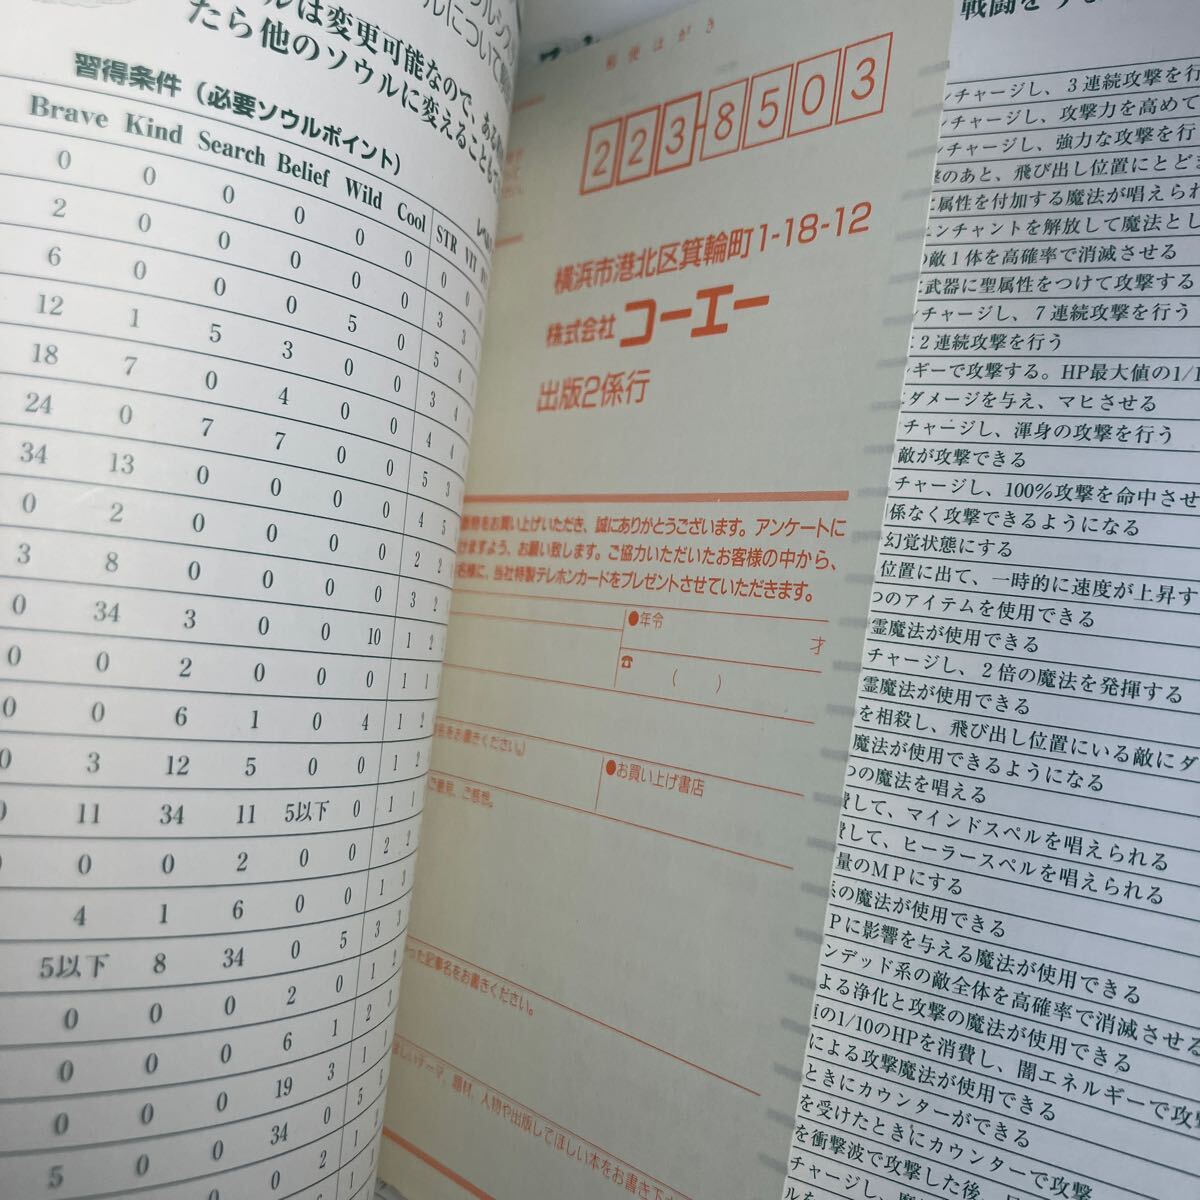 ルについて
ルは変更可能なので、ある
たら他のソウルに変えることも
習得条件（必要ソウルポイント）
Brave Kind Search Belief Wild Cool STR VIT
0 0 0 0 0 0 0 0
2 0 0 0 0 0 3 3
6 0 0 0 5 0 5 4
12 1 5 3 0 0 3 4
18 7 0 4 0 0 4 4
24 0 7 7 0 0 5 3
34 13 0 0 0 0 4 5
0 2 0 0 0 0 2 2
3 8 0 0 0 0 3 2
0 34 3 0 0 10 1 2
0 0 2 0 0 0 1 1
0 0 6 1 0 4 1 2
0 3 12 5 0 0 1 2
0 11 34 11 5以下 0 1 1
0 0 0 2 0 0 2 2
4 1 6 0 0 1 3
5以下 8 34 0 5 3 3
0 0 0 2 0 1 2
0 0 0 6 1 2 3
0 0 0 19 3 1 1
0 0 0 34 0 5 2
5 0 0 0 2 1
郵便はがき
223-8503
横浜市港北区箕輪町1-18-12
株式会社 コーエー
出版2係行
をお買い上げいただき、誠にありがとうございます。アンケートに
けますよう、お願い致します。ご協力いただいたお客様の中から、
名様に、当社特製テレホンカードをプレゼントさせていただきます。
●年令
才
☎
( )
名をお書きください。）
●お買い上げ書店
ご意見、ご感想。
った記事名をお書きください。
ほしいテーマ、題材、人物や出版してほしい本をお書き下
戦闘を
ンチャージし、3連続攻撃を行
ンチャージし、攻撃力を高めて
ンチャージし、強力な攻撃を行
撃のあと、飛び出し位置にとどま
に属性を付加する魔法が唱えられ
エンチャントを解放して魔法とし
の敵1体を高確率で消滅させる
に武器に聖属性をつけて攻撃する
ンチャージし、7連続攻撃を行う
に2連続攻撃を行う
ルギーで攻撃する。HP最大値の1/1
にダメージを与え、マヒさせる
チャージし、渾身の攻撃を行う
敵が攻撃できる
チャージし、100%攻撃を命中させ
係なく攻撃できるようになる
幻覚状態にする
位置に出て、一時的に速度が上昇す
つのアイテムを使用できる
霊魔法が使用できる
チャージし、2倍の魔法を発揮する
霊魔法が使用できる
を相殺し、飛び出し位置にいる敵にダ
魔法が使用できるようになる
つの魔法を唱える
費して、マインドスペルを唱えられる
費して、ヒーラースペルを唱えられる
量のMPにする
系の魔法が使用できる
Pに影響を与える魔法が使用できる
ンデッド系の敵全体を高確率で消滅させる
よる浄化と攻撃の魔法が使用できる
値の1/10のHPを消費し、闇エネルギーで攻撃
による攻撃魔法が使用できる
ときにカウンターができる
を受けたときにカウンターで攻撃
を衝撃波で攻撃した後、
チャージし、魔